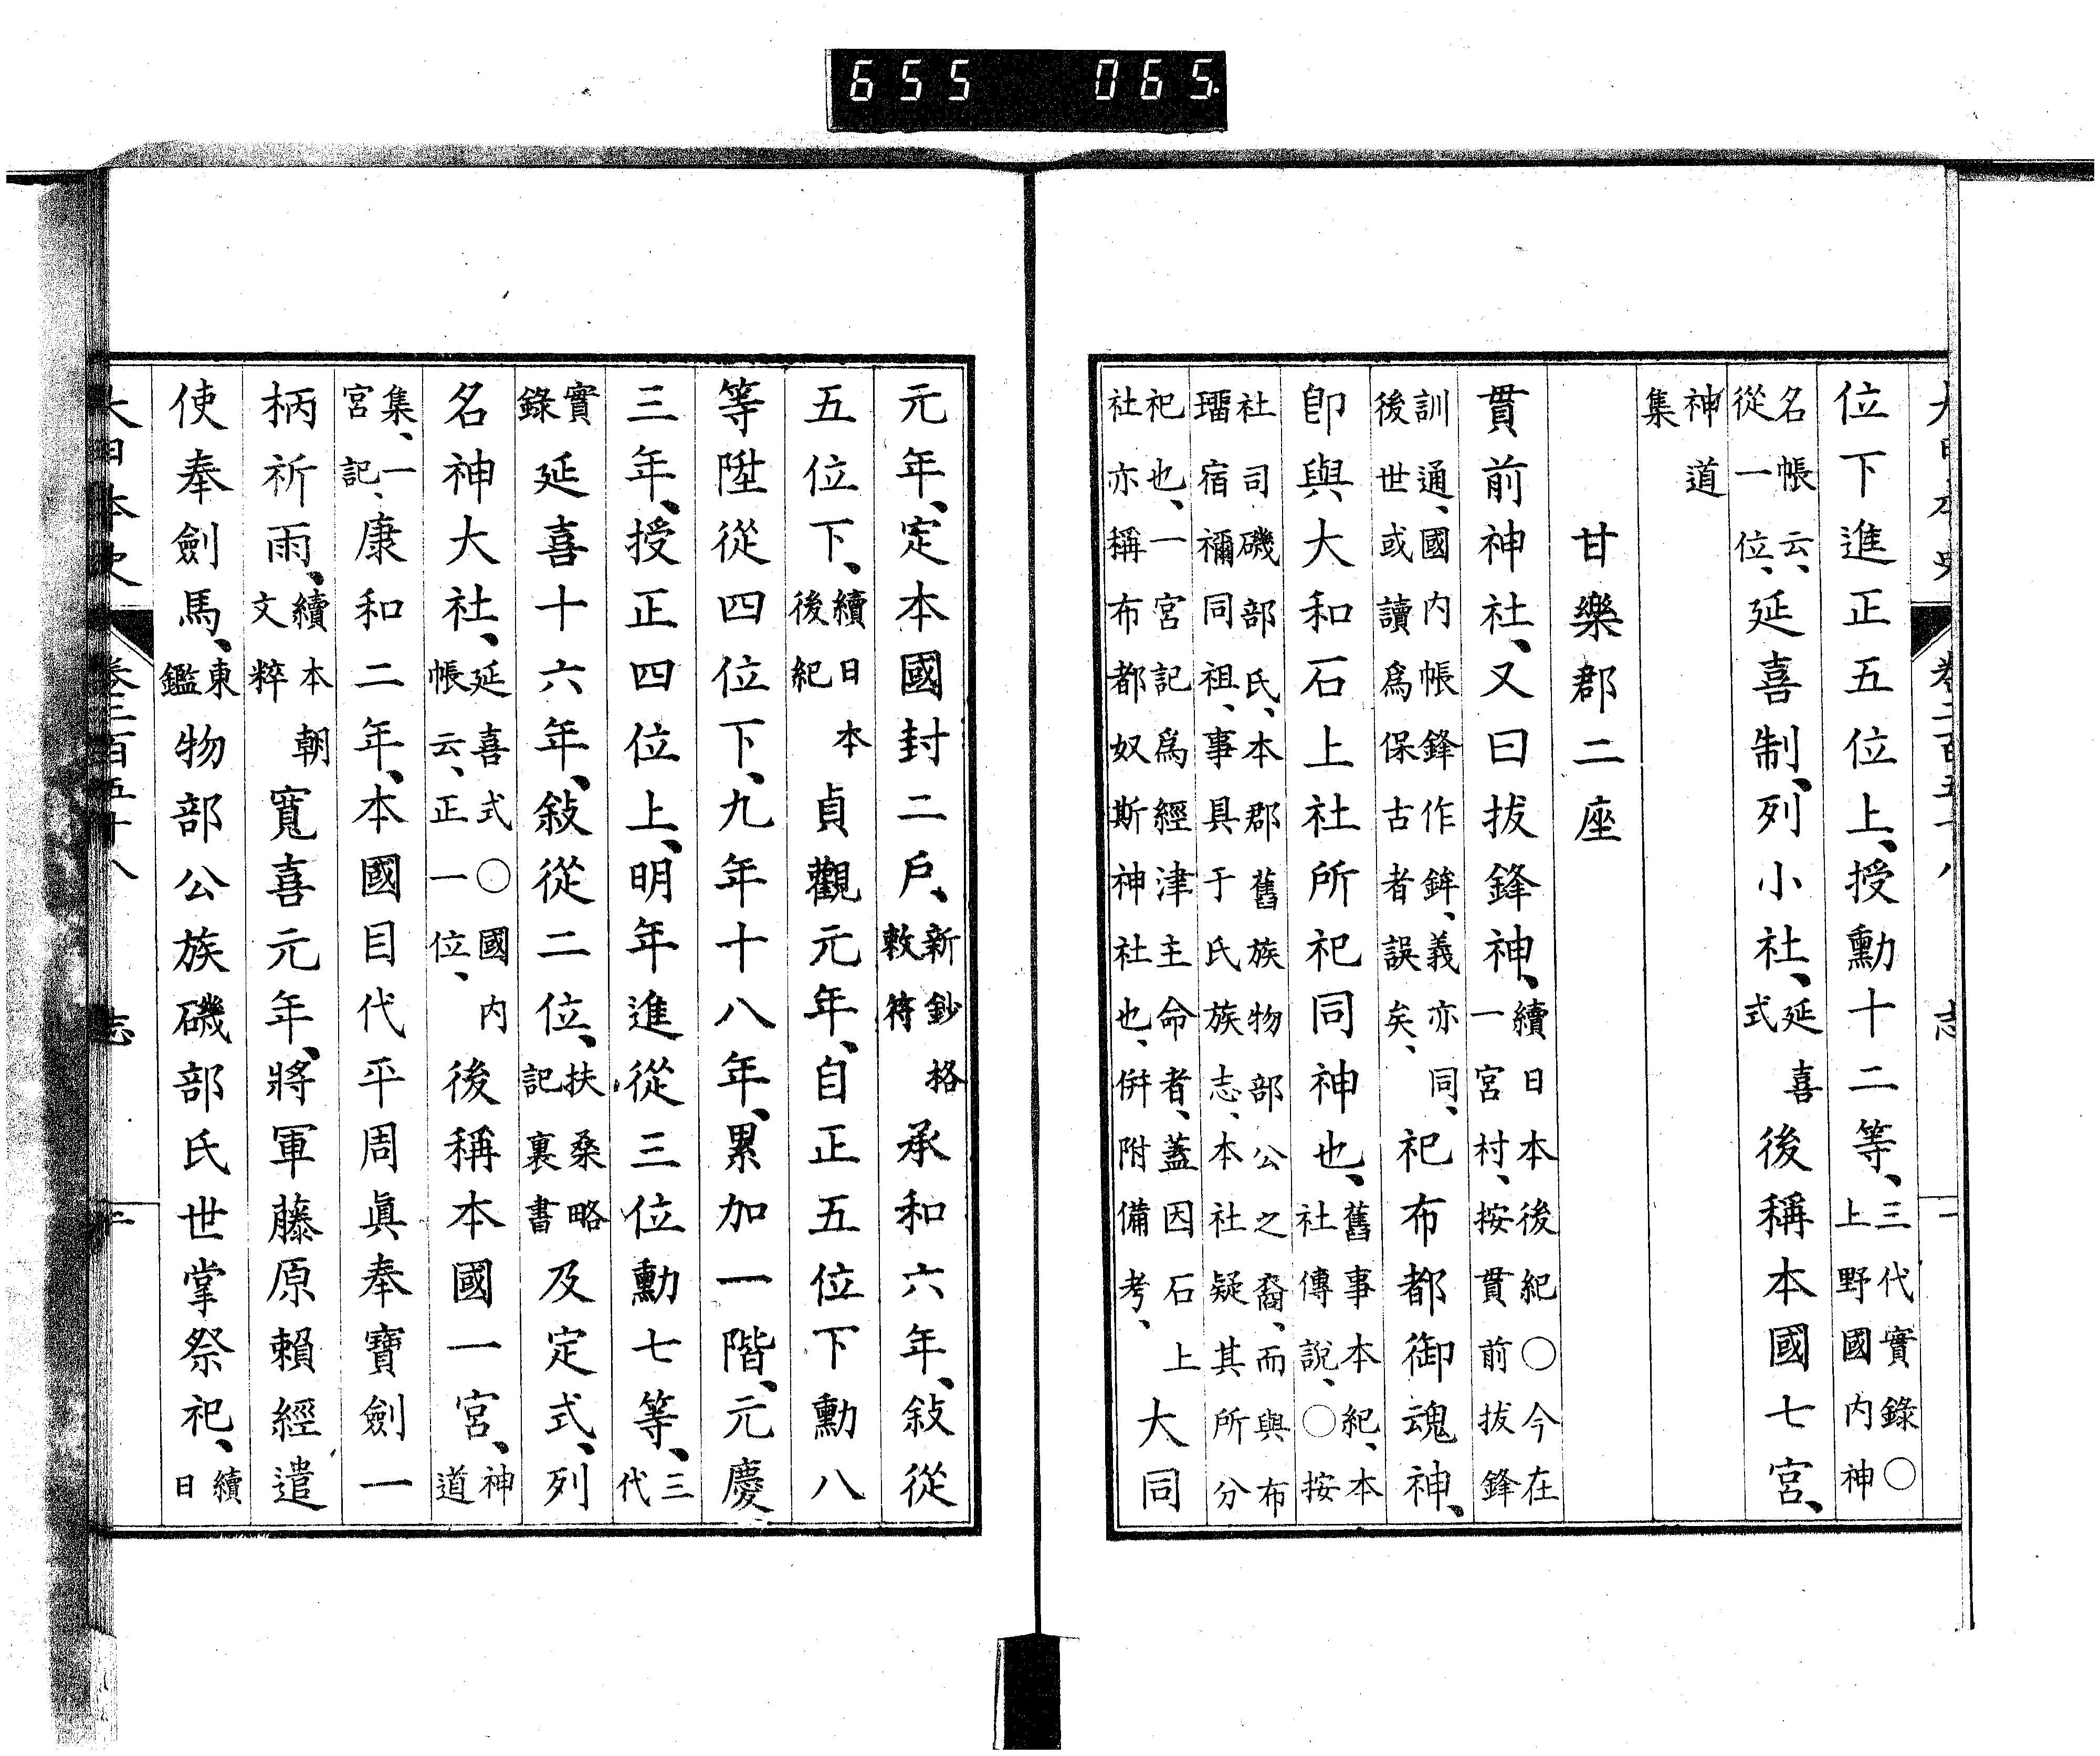 655 065
大日本史 卷二百五十八 志
位下進正五位上、授勳十二等、三代實錄○上野國內神
名帳云、從一位、延喜制、列小社、延喜式後稱本國七宮、
神道集
甘樂郡二座
貫前神社、又曰拔鋒神、續日本後紀○今在一宮村、按貫前拔鋒
訓通、國內帳鋒作鉾、義亦同、後世或讀爲保古者誤矣、祀布都御魂神、
卽與大和石上社所祀同神也、舊事本紀、本社傳說、○按
社司磯部氏、本郡舊族物部公之裔、而與布瑠宿禰同祖、事具于氏族志、本社疑其所分
祀也、一宮記爲經津主命者、蓋因石上社亦稱布都奴斯神社也、併附備考、大同
元年、定本國封二戶、新鈔格敕符承和六年、敍從
五位下、續日本後紀貞觀元年、自正五位下勳八
等陞從四位下、九年十八年、累加一階、元慶
三年、授正四位上、明年進從三位勳七等、三代
實錄延喜十六年、敍從二位、扶桑略記裏書及定式、列
名神大社、延喜式○國內帳云、正一位、後稱本國一宮、神道
集、一宮記、康和二年、本國目代平周眞奉寶劍一
柄祈雨、續本朝文粹寬喜元年、將軍藤原賴經遣
使奉劍馬、東鑑物部公族磯部氏世掌祭祀、續日
大日本史 卷二百五十八 志